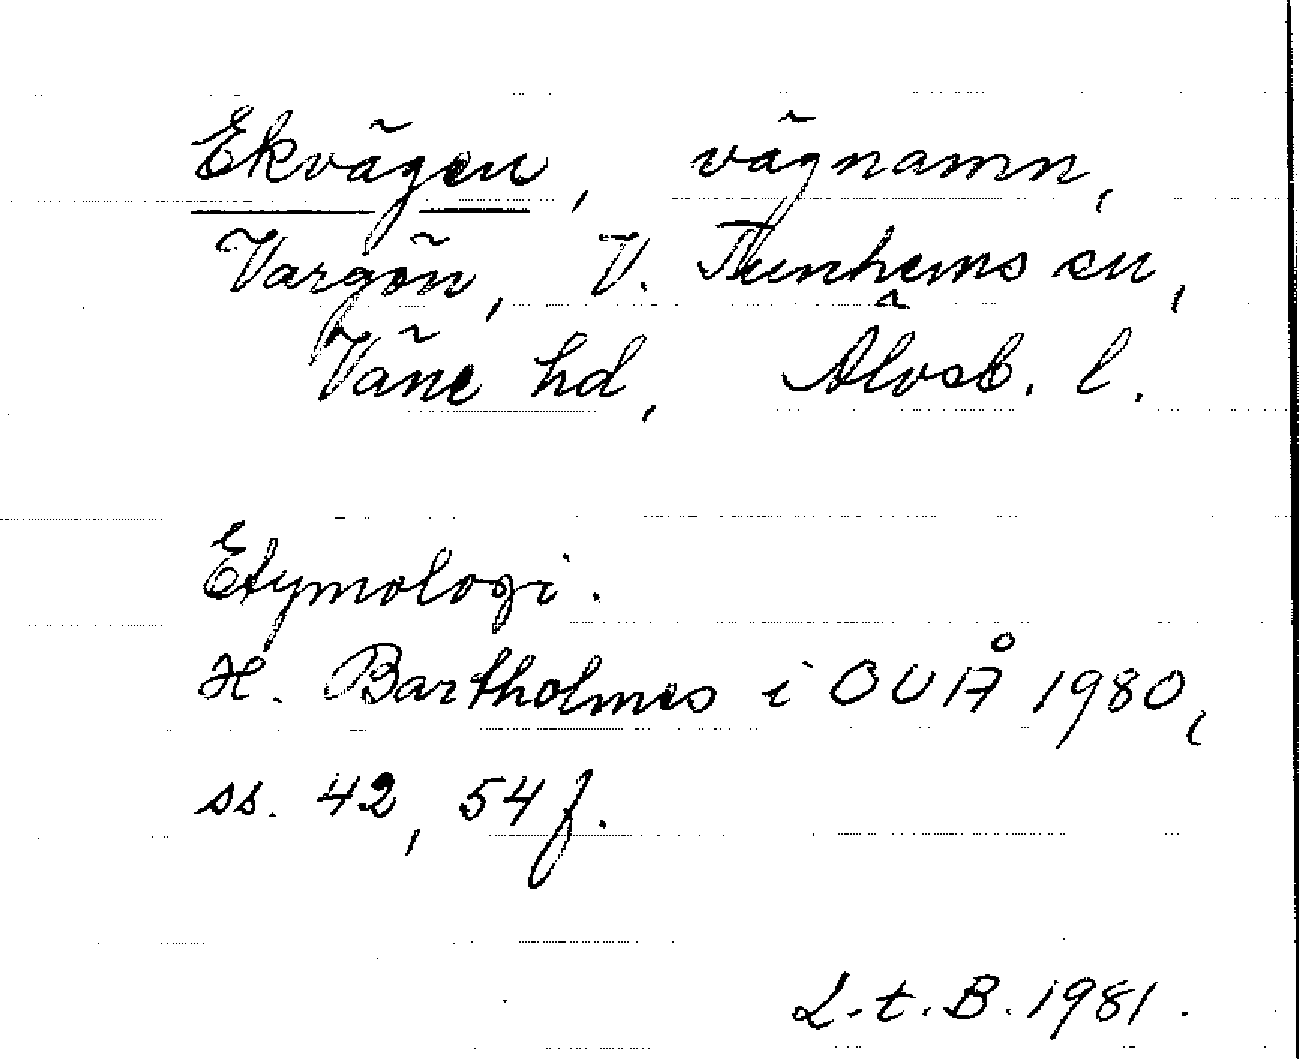 Ekvägen, vägnamn,
Vargön, V. Tunhems sn,
Väne hd, Älvsb. l.
Etymologi.
H. Bartholmes i OUÅ 1980,
ss. 42, 54 f.
L.t.B. 1981.